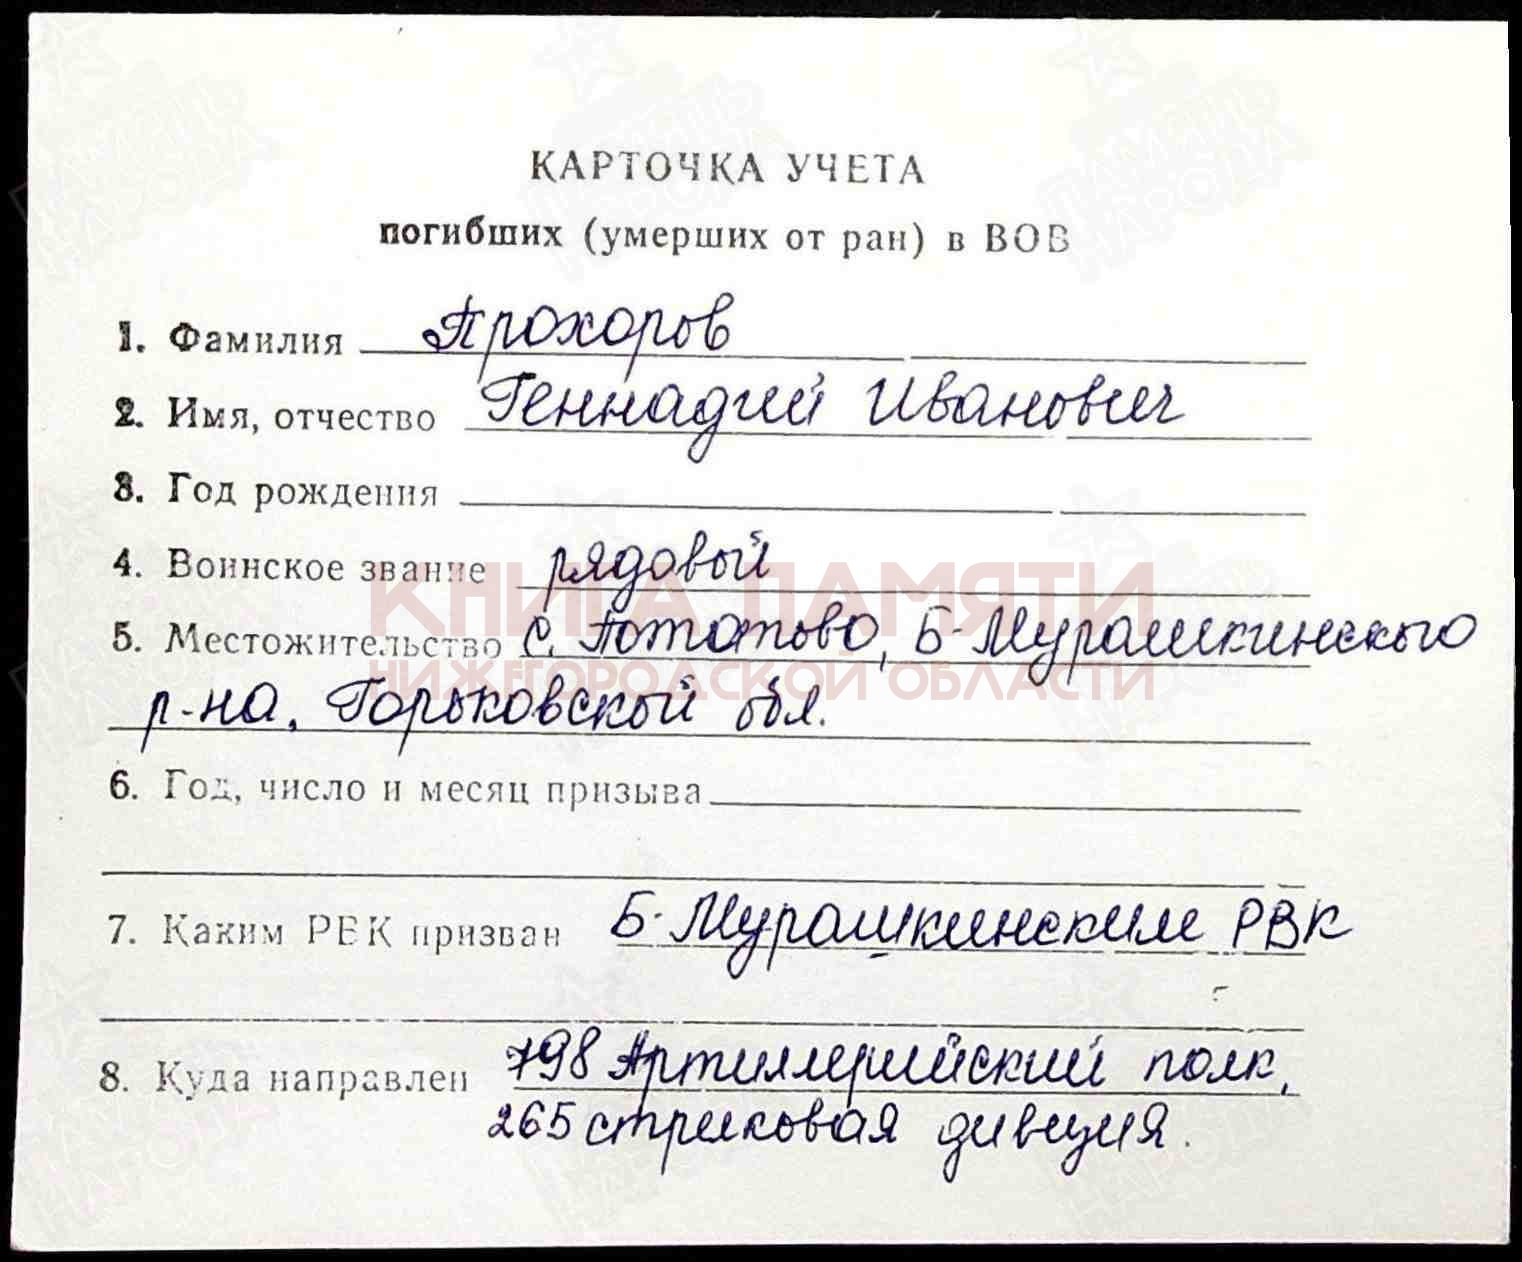 КАРТОЧКА УЧЕТА
погибших (умерших от ран) в ВОВ
1. Фамилия Прохоров
2. Имя, отчество Геннадий Иванович
3. Год рождения
4. Воинское звание рядовый
КНИГА ПАМЯТИ
5. Местожительство с. Потатово, Б-Мурашкинского
НИЖЕГОРОДСКОЙ ОБЛАСТИ
р-на, Горьковской обл.
6. Год, число и месяц призыва
7. Каким РВК призван Б-Мурашкинским РВК
8. Куда направлен 798 Артиллерийский полк,
265 стрелковая дивизия.
ПАМЯТЬ НАРОДА